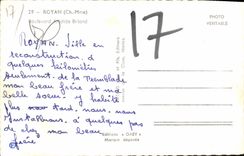 29 - ROYAN (Ch.-Mme)
Boulevard Aristide Briand
17
PHOTO
VERITABLE
ROYAN. Ville en
reconstruction, à
quelques kilomètres
seulement de la Tremblade
mon beau frère et ma
belle soeur y
plus tard, nous
installons à quelques pas
de chez mon beau
frère
17
Editions "GABY"
Marque déposée